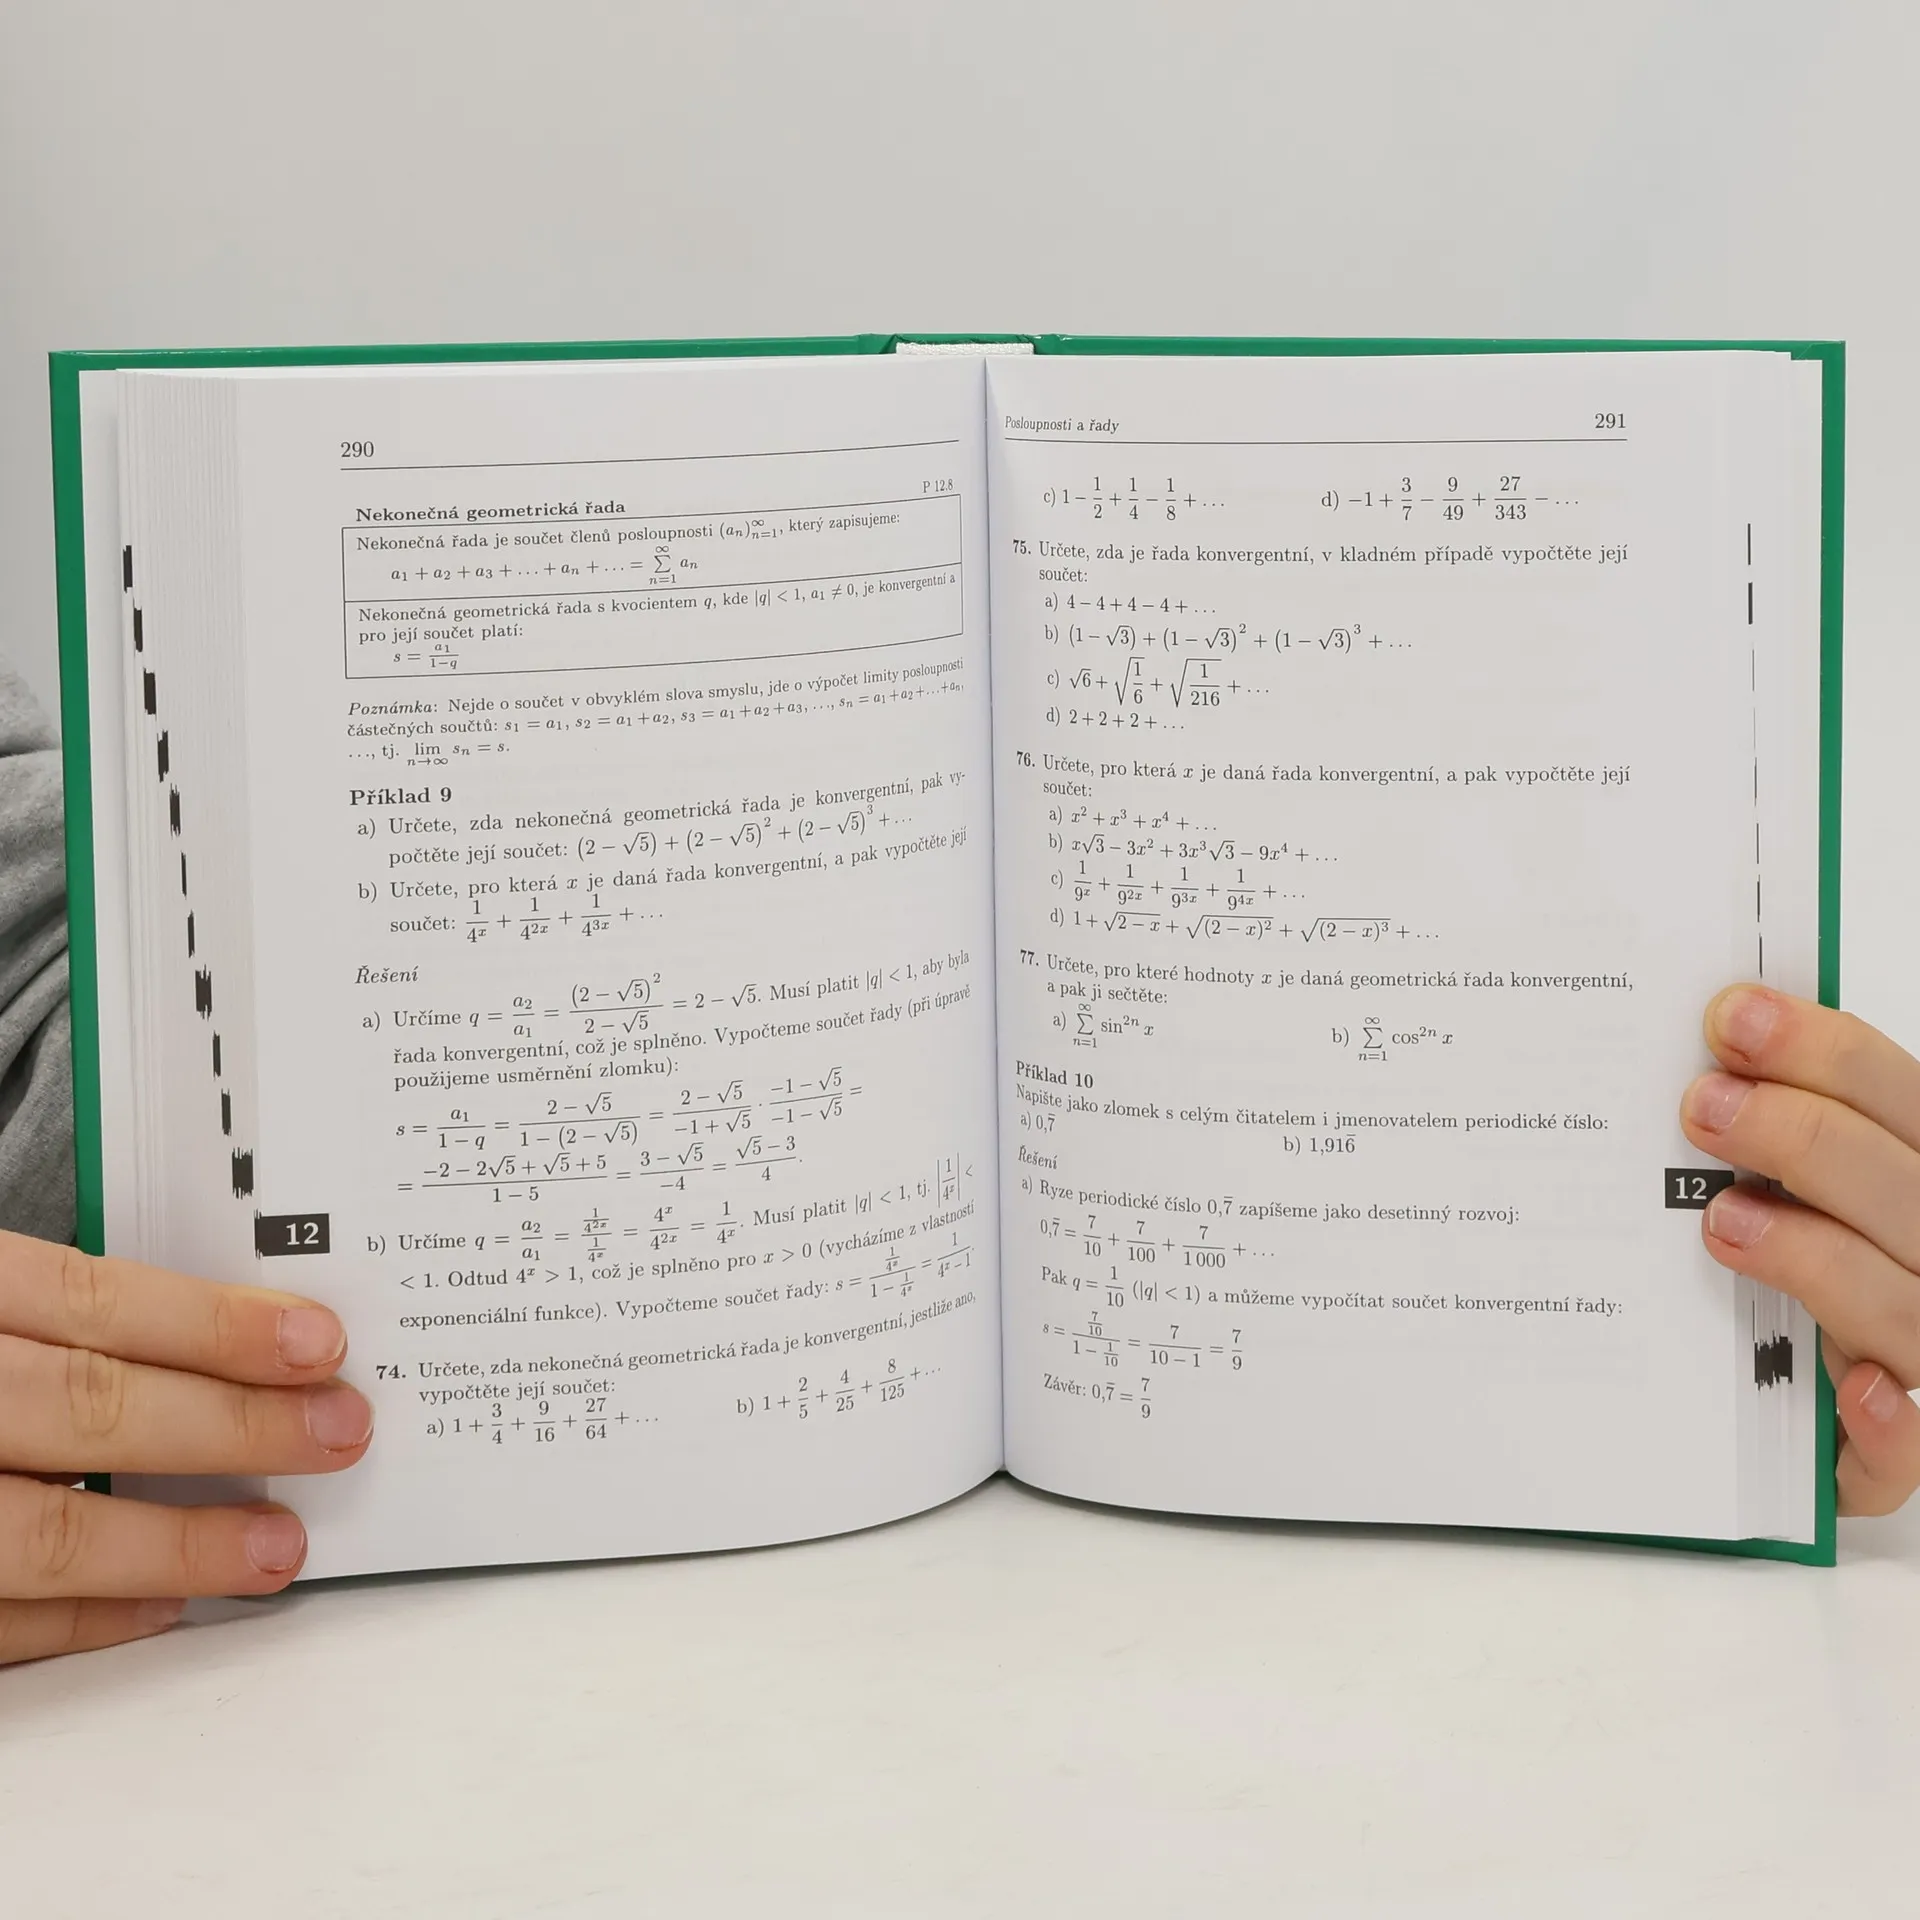 290
Nekonečná geometrická řada P 12.8
Nekonečná řada je součet členů posloupnosti (aₙ)ₙ₌₁^∞, který zapisujeme:
a₁ + a₂ + a₃ + … + aₙ + … = ∑ₙ₌₁^∞ aₙ
Nekonečná geometrická řada s kvocientem q, kde |q| < 1, a₁ ≠ 0, je konvergentní a
pro její součet platí:
s = a₁/(1−q)
Poznámka: Nejde o součet v obvyklém slova smyslu, jde o výpočet limity posloupnosti
částečných součtů: s₁ = a₁, s₂ = a₁+a₂, s₃ = a₁+a₂+a₃, …, sₙ = a₁+a₂+…+aₙ,
…, tj. lim_{n→∞} sₙ = s.
Příklad 9
a) Určete, zda nekonečná geometrická řada je konvergentní, pak vy-
počtěte její součet: (2 − √5) + (2 − √5)² + (2 − √5)³ + …
b) Určete, pro která x je daná řada konvergentní, a pak vypočtěte její
součet: 1/4ˣ + 1/4²ˣ + 1/4³ˣ + …
Řešení
a) Určíme q = a₂/a₁ = (2 − √5)²/(2 − √5) = 2 − √5. Musí platit |q| < 1, aby byla
řada konvergentní, což je splněno. Vypočteme součet řady (při úpravě
použijeme usměrnění zlomku):
s = a₁/(1 − q) = (2 − √5)/(1 − (2 − √5)) = (2 − √5)/(−1 + √5) · (−1 − √5)/(−1 − √5) =
= (−2 − 2√5 + √5 + 5)/(1 − 5) = (3 − √5)/(−4) = (√5 − 3)/4.
b) Určíme q = a₂/a₁ = (1/4²ˣ)/(1/4ˣ) = 4ˣ/4²ˣ = 1/4ˣ. Musí platit |q| < 1, tj. |1/4ˣ| <
< 1. Odtud 4ˣ > 1, což je splněno pro x > 0 (vycházíme z vlastností
exponenciální funkce). Vypočteme součet řady: s = (1/4ˣ)/(1 − 1/4ˣ) = 1/(4ˣ − 1).
74. Určete, zda nekonečná geometrická řada je konvergentní, jestliže ano,
vypočtěte její součet:
a) 1 + 3/4 + 9/16 + 27/64 + … b) 1 + 2/5 + 4/25 + 8/125 + …
12
Posloupnosti a řady 291
c) 1 − 1/2 + 1/4 − 1/8 + … d) −1 + 3/7 − 9/49 + 27/343 − …
75. Určete, zda je řada konvergentní, v kladném případě vypočtěte její
součet:
a) 4 − 4 + 4 − 4 + …
b) (1 − √3) + (1 − √3)² + (1 − √3)³ + …
c) √6 + √(1/6) + √(1/216) + …
d) 2 + 2 + 2 + …
76. Určete, pro která x je daná řada konvergentní, a pak vypočtěte její
součet:
a) x² + x³ + x⁴ + …
b) x√3 − 3x² + 3x³√3 − 9x⁴ + …
c) 1/9ˣ + 1/9²ˣ + 1/9³ˣ + 1/9⁴ˣ + …
d) 1 + √(2 − x) + √((2 − x)²) + √((2 − x)³) + …
77. Určete, pro které hodnoty x je daná geometrická řada konvergentní,
a pak ji sečtěte:
a) ∑ₙ₌₁^∞ sin²ⁿ x b) ∑ₙ₌₁^∞ cos²ⁿ x
Příklad 10
Napište jako zlomek s celým čitatelem i jmenovatelem periodické číslo:
a) 0,7̅ b) 1,916̅
Řešení
a) Ryze periodické číslo 0,7̅ zapíšeme jako desetinný rozvoj:
0,7̅ = 7/10 + 7/100 + 7/1 000 + …
Pak q = 1/10 (|q| < 1) a můžeme vypočítat součet konvergentní řady:
s = (7/10)/(1 − 1/10) = 7/(10 − 1) = 7/9
Závěr: 0,7̅ = 7/9
12